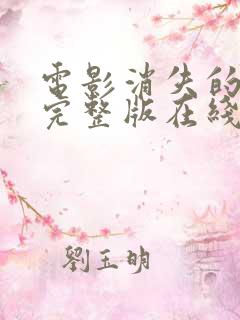 電影消失的
完整版在綫
劉玉明